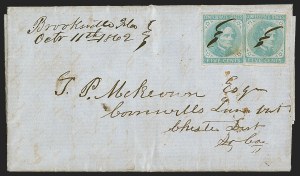 Brooksville Fla
Octr 11th 1862
FIVE CENTS FIVE CENTS
T. P. McKeown Esqr
Cornwells
Chester Dist
So Ca